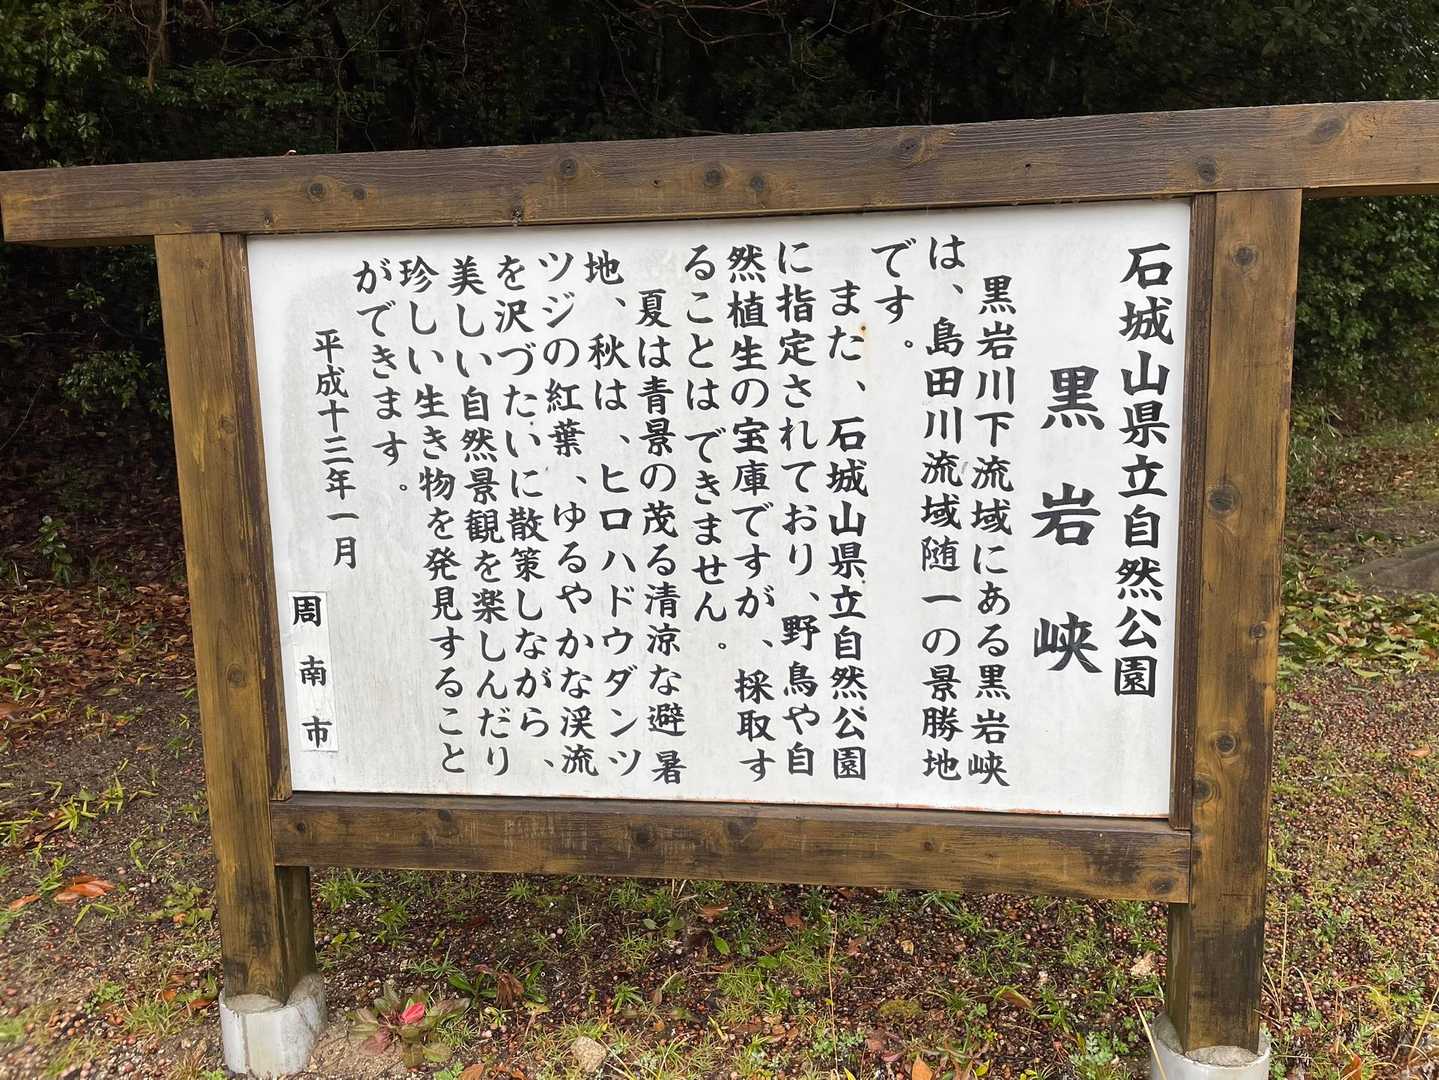 石城山県立自然公園
黒岩峡
黒岩川下流域にある黒岩峡
は、島田川流域随一の景勝地
です。
また、石城山県立自然公園
に指定されており、野鳥や自
然植生の宝庫ですが、採取す
ることはできません。
夏は青景の茂る清涼な避暑
地、秋は、ヒロハドウダンツ
ツジの紅葉、ゆるやかな渓流
を沢づたいに散策しながら、
美しい自然景観を楽しんだり
珍しい生き物を発見すること
ができます。
平成十三年一月
周南市